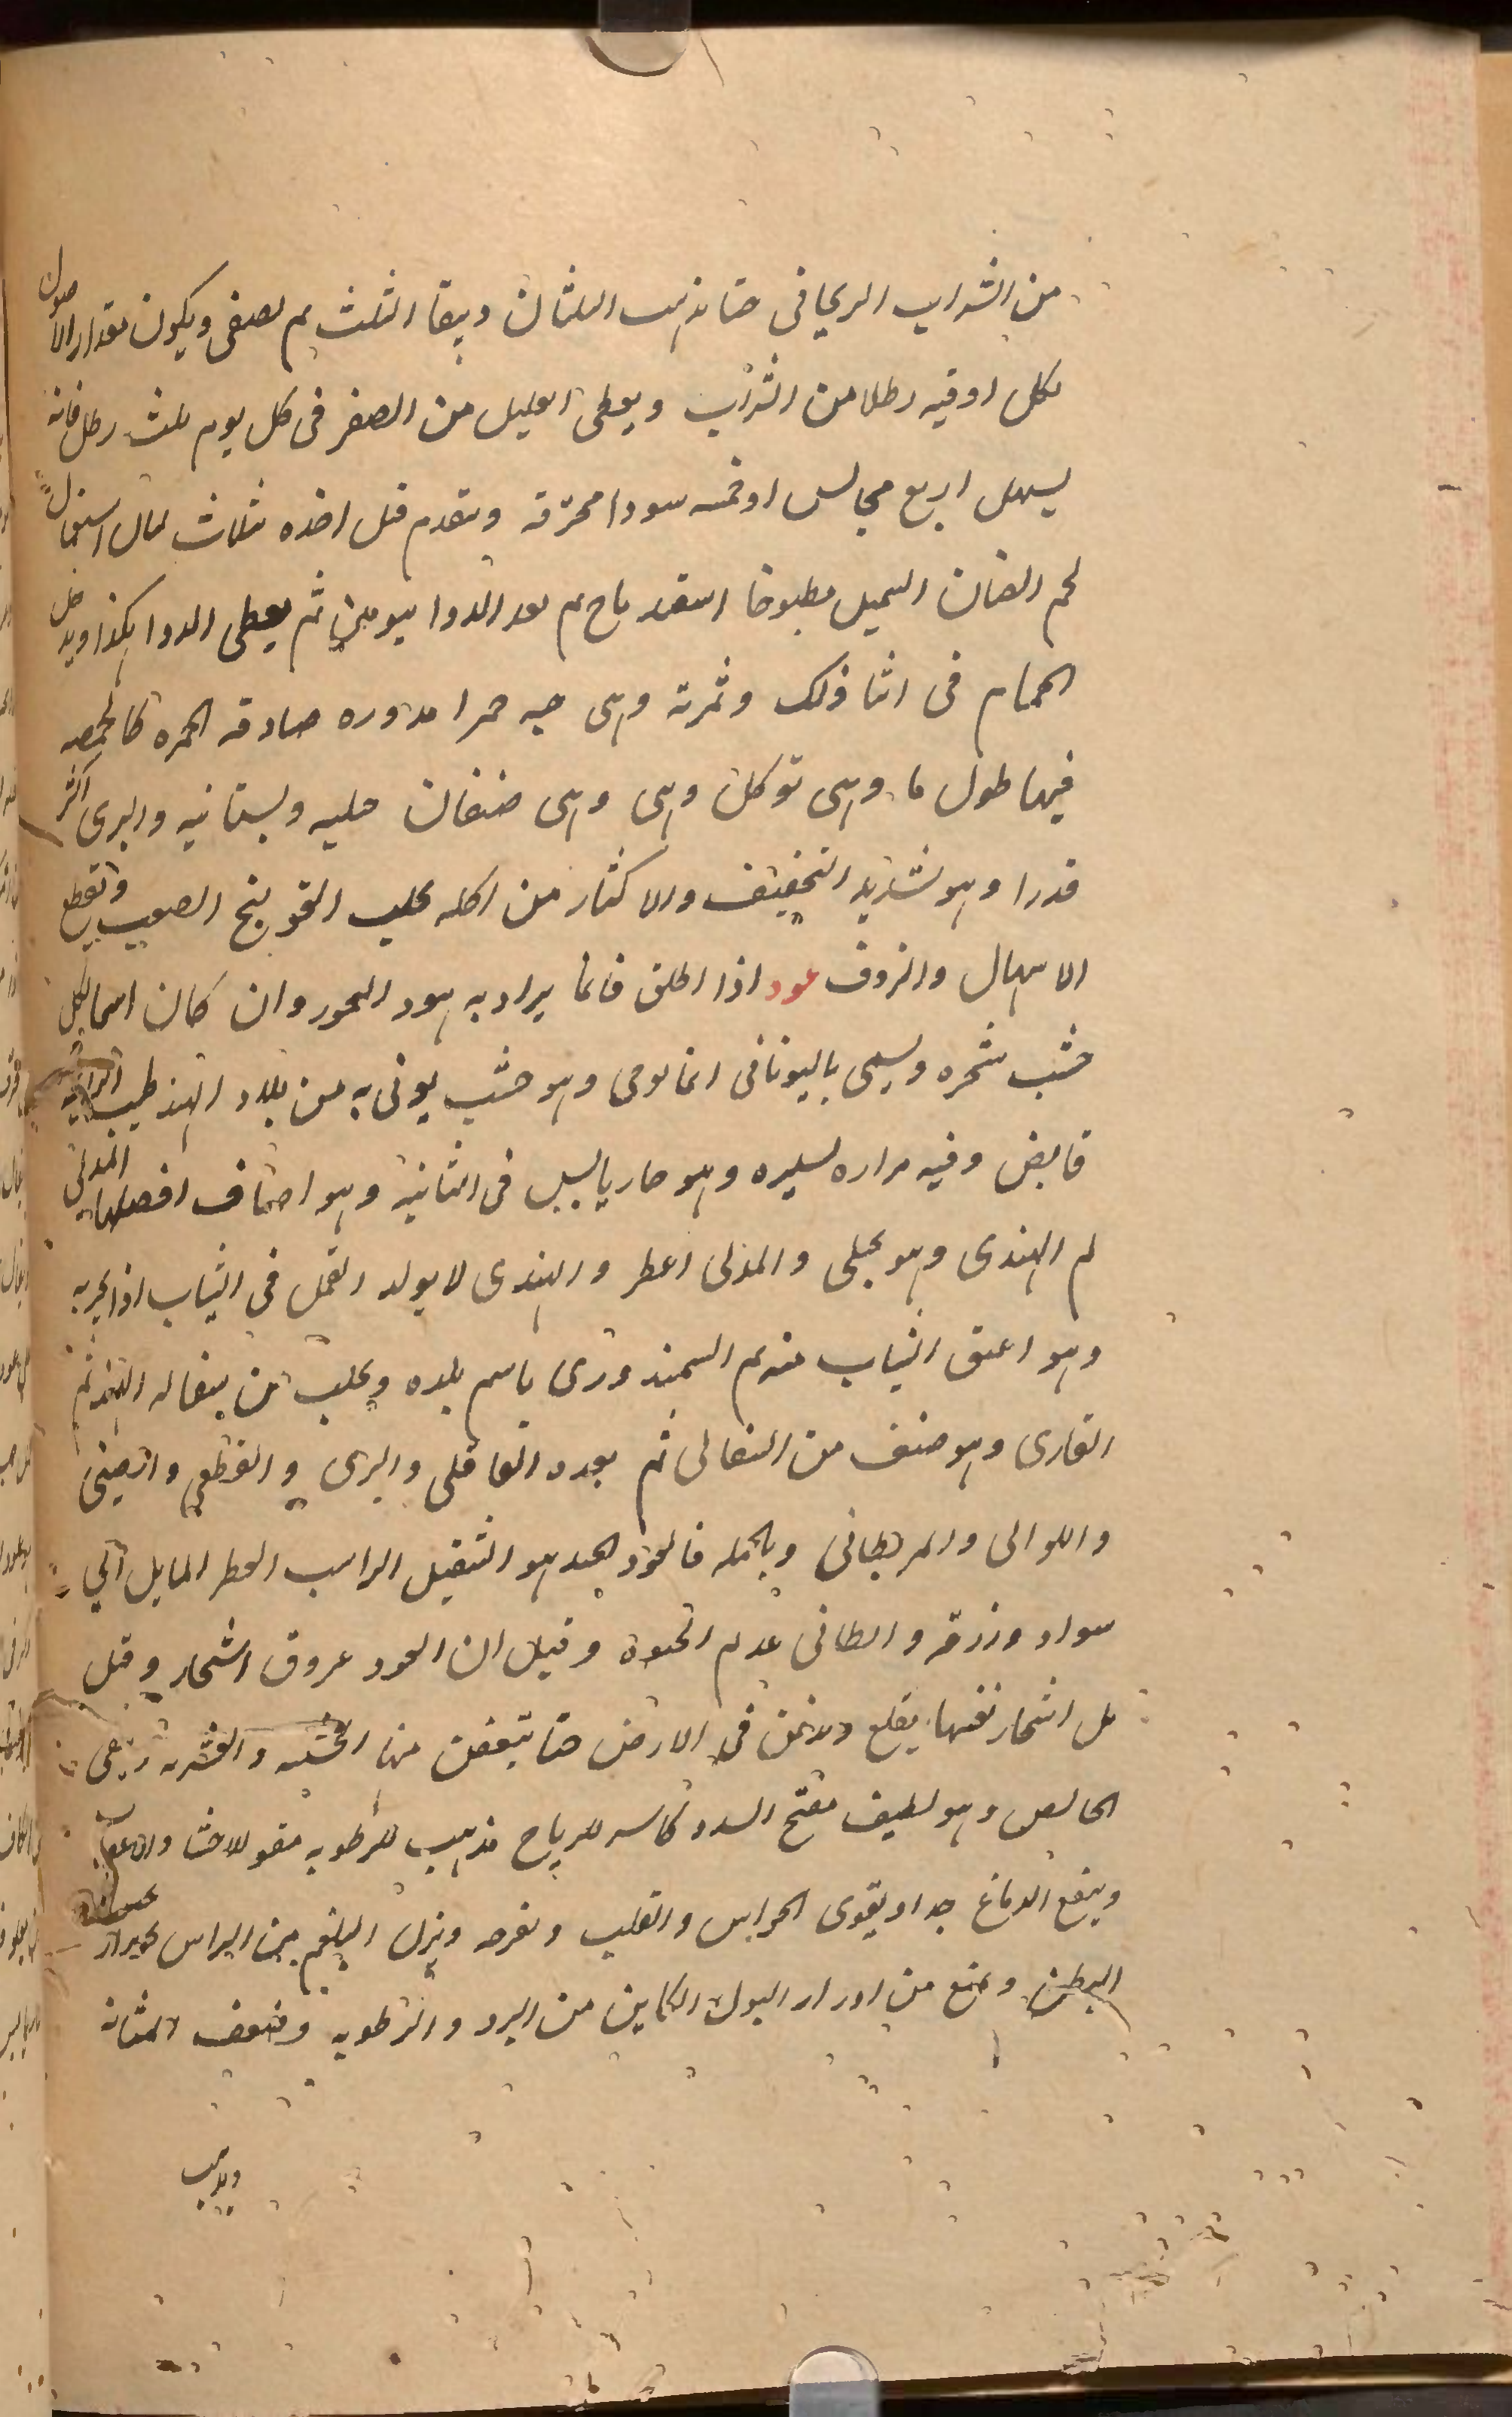 من الشراب الريحانى حتا يذهب الثلثان ويبقا الثلث ثم يصفى ويكون مقدار الاصول
لكل اوقيه رطلا من الشراب ويعطى العليل من الصفر فى كل يوم ثلث رطل فانه
يسهل اربع مجالس او خمسه سودا محترقه ويتقدم قبل اخذه بثلاث ليال استعمال
لحم الضان السمين مطبوخا اسفيدباج ثم بعد الدوا بيومين ثم يعطى الدوا هكذا ويدخل
الحمام فى اثنا ذلك وثمرته وهى حبه حمرا مدوره صادقه الحمره كالحمصه
فيها طول ما وهى توكل وهى وهى صنفان جبليه وبستانيه والبرى اكثر
قدرا وهو شديد التجفيف والاكثار من اكله يجلب القولنج الصعب وتقطع
الاسهال والنزوف عود اذا اطلق فانما يراد به هود البخور وان كان اسما لكل
خشب شجره ويسمى باليونانى اغالوجى وهو خشب يوتى به من بلاد الهند طيب الرايحه
قابض وفيه مراره يسيره وهو حار يابس فى الثانيه وهو اصناف افضلها المندلى
ثم الهندى وهو جبلى والمندلى اعطر والهندى لا يولد القمل فى الثياب اذا بخر به
وهو اعبق الثياب منه ثم السمندورى باسم بلده ويجلب من سفاله الهند ثم
القمارى وهو صنف من السفالى ثم بعده القاقلى والبرى والقطعى والصينى
واللوالى والمربطانى وبالجمله فالعود الجيد هو الثقيل الراسب العطر المايل الي
سواد وزرقه والطافى عديم الحيوة وقيل ان العود عروق اشجار وقيل
بل اشجار نفسها يقلع ويدفن فى الارض حتا يتعفن منها الخشبه والقشريه ويبقى
الخالص وهو لطيف مفتح السدد كاسر للرياح مذهب للرطوبه مقو للاحشا والاعصاب
وينفع الدماغ جدا ويقوى الحواس والقلب ويفرحه وينزل البلغم من الراس
البطن ويمنع من ادرار البول الكاين من البرد والرطوبه وضعف المثانه
ويذهب